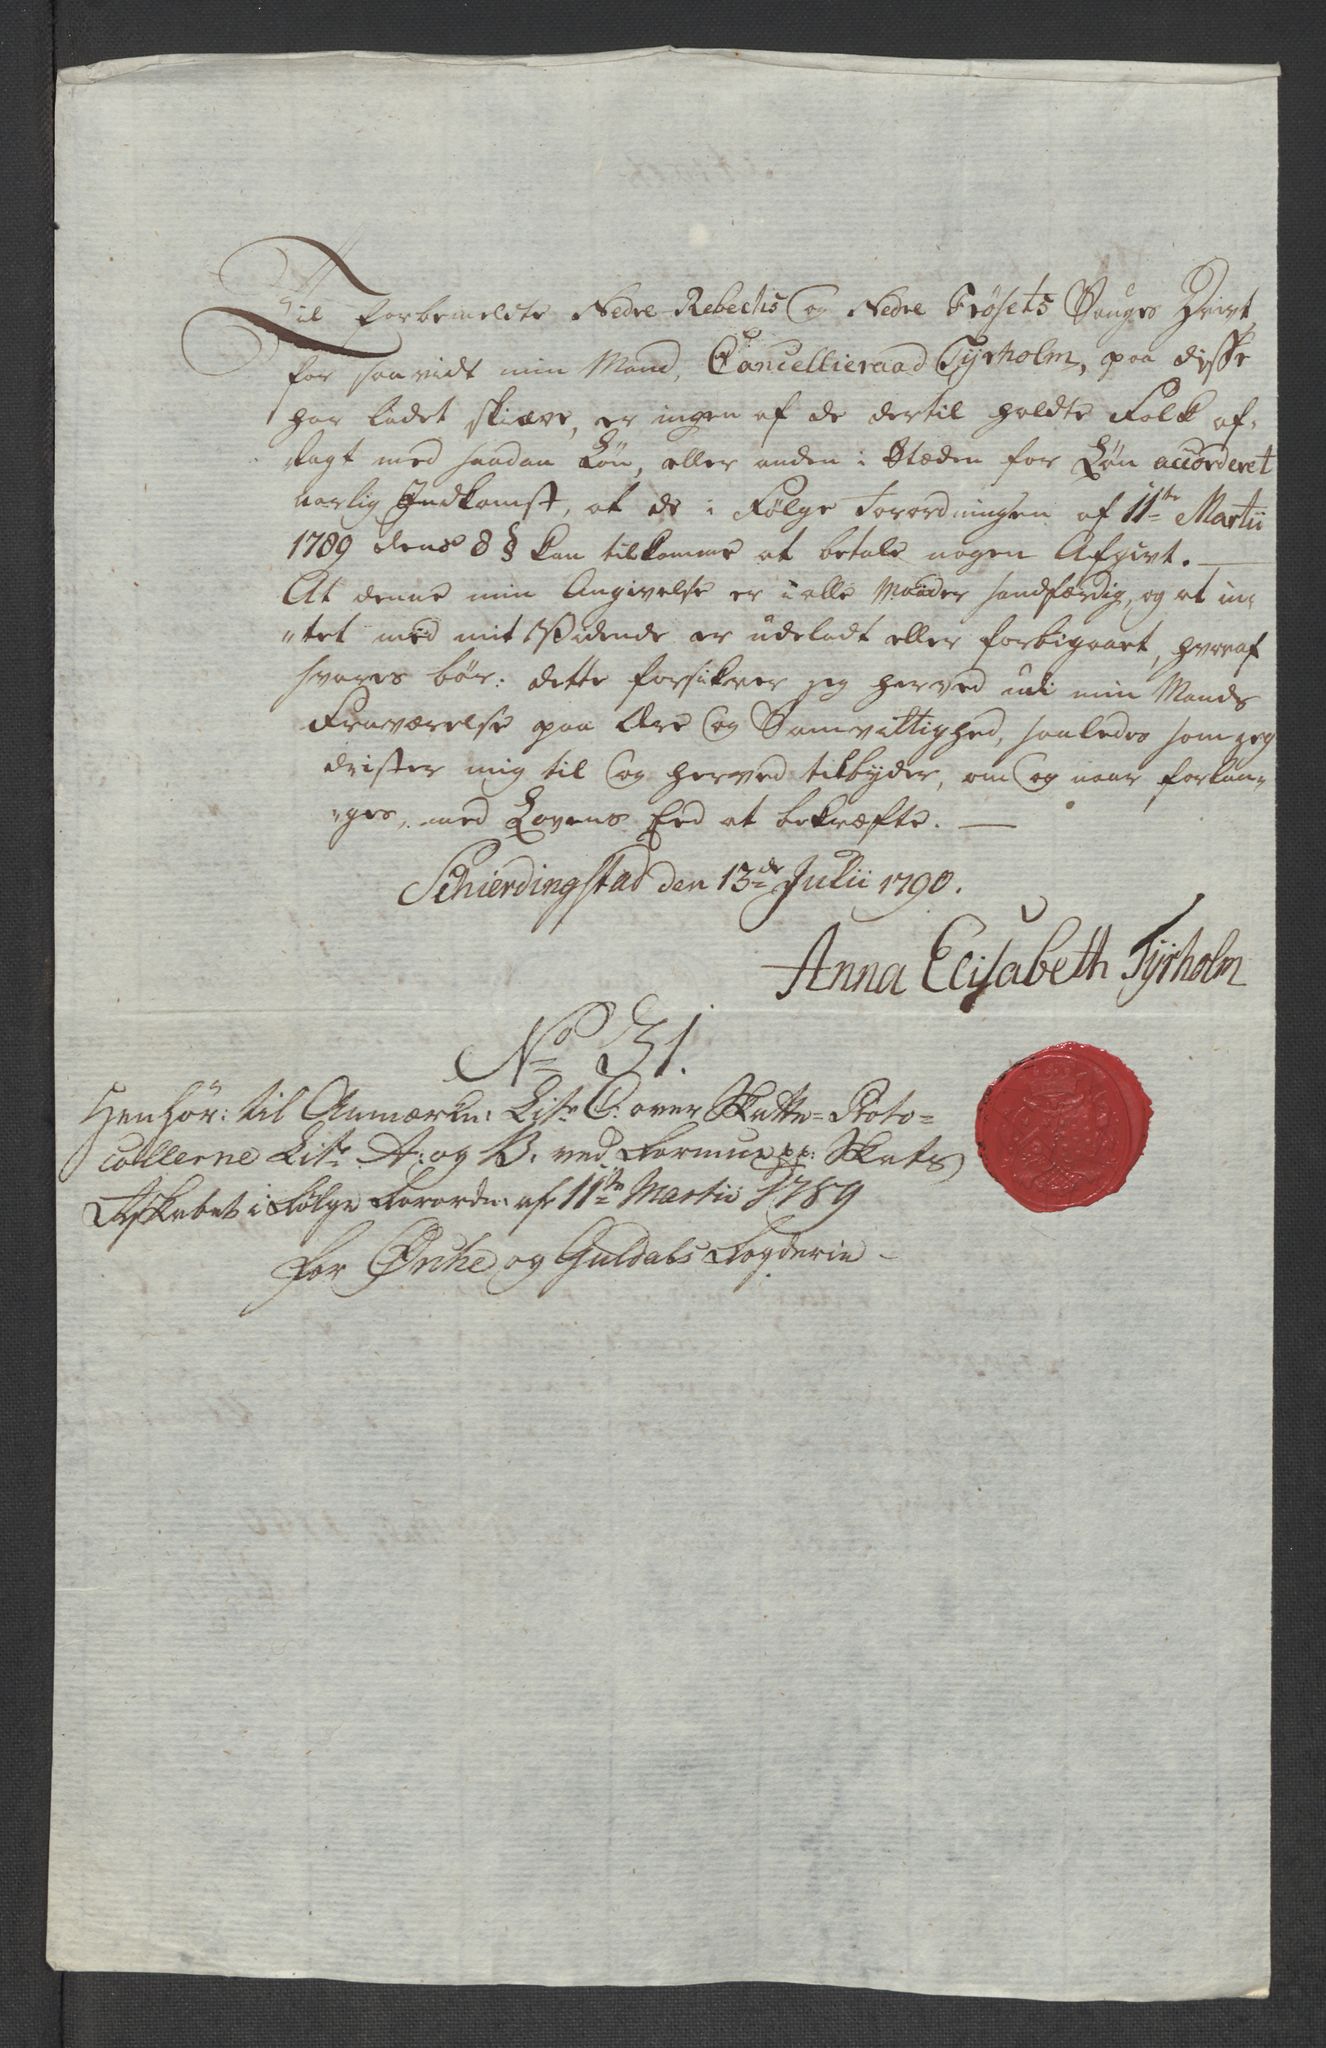 Til forbemeldte Nedre Rebechs og Nedre Frösets Sauges Drivt,
for saavidt min Mand, Cancellieraad Tyrholm, paa disse
har ladet skiære, er ingen af de dertil holdte Folk af-
lagt med saadan Løn, eller anden i Stæden for Løn accorderet
aarlig Indkomst, at de i Følge Forordningen af 11te Martii
1789 dens 8 § kan tilkomme at betale nogen Afgivt. —
At denne min Angivelse er i alle Maader sandfærdig, og at in-
"tet med mit Vidende er udeladt eller forbigaaet, hvoraf
svares bør: dette forsikrer jeg herved udi min Mands
Fraværelse paa Ære og Samvittighed, saaledes som jeg
drister mig til og herved tilbyder, om og naar forlan-
"ges, med Lovens Eed at bekræfte. —
Schierdingstad den 13de Julii 1790.
Anna Elisabeth Tyrholm
No 31.
Henhör: til Anmærkn: Litr C: over Skatte-Proto-
collerne Litr A: og B. ved Formue pp: Skats
Regnskabet i Følge Forordn: af 11te Martii 1789
for Örche og Guldals Fogderie —